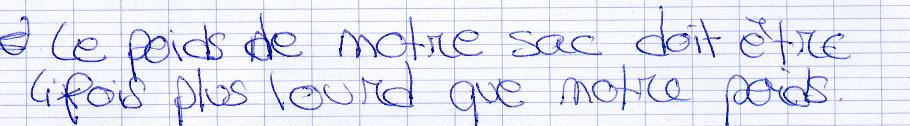 Le poids de notre sac doit être
4 fois plus lourd que notre poids.